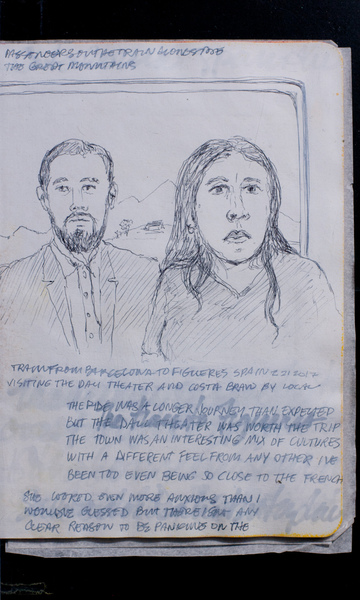 PASSENGERS ON THE TRAIN ALONGSIDE
THE GREAT MOUNTAINS
TRAIN FROM BARCELONA TO FIGUERES SPAIN
VISITING THE DALI THEATER AND COSTA BRAVA BY LOCAL
THE RIDE WAS A LONGER JOURNEY THAN EXPECTED
BUT THE DALI THEATER WAS WORTH THE TRIP
THE TOWN WAS AN INTERESTING MIX OF CULTURES
WITH A DIFFERENT FEEL FROM ANY OTHER I'VE
BEEN TOO EVEN BEING SO CLOSE TO THE FRENCH
SHE LOOKED EVEN MORE ANXIOUS THAN I
WOULD'VE GUESSED BUT THERE ISN'T ANY
CLEAR REASON TO BE PANICKING ON THE